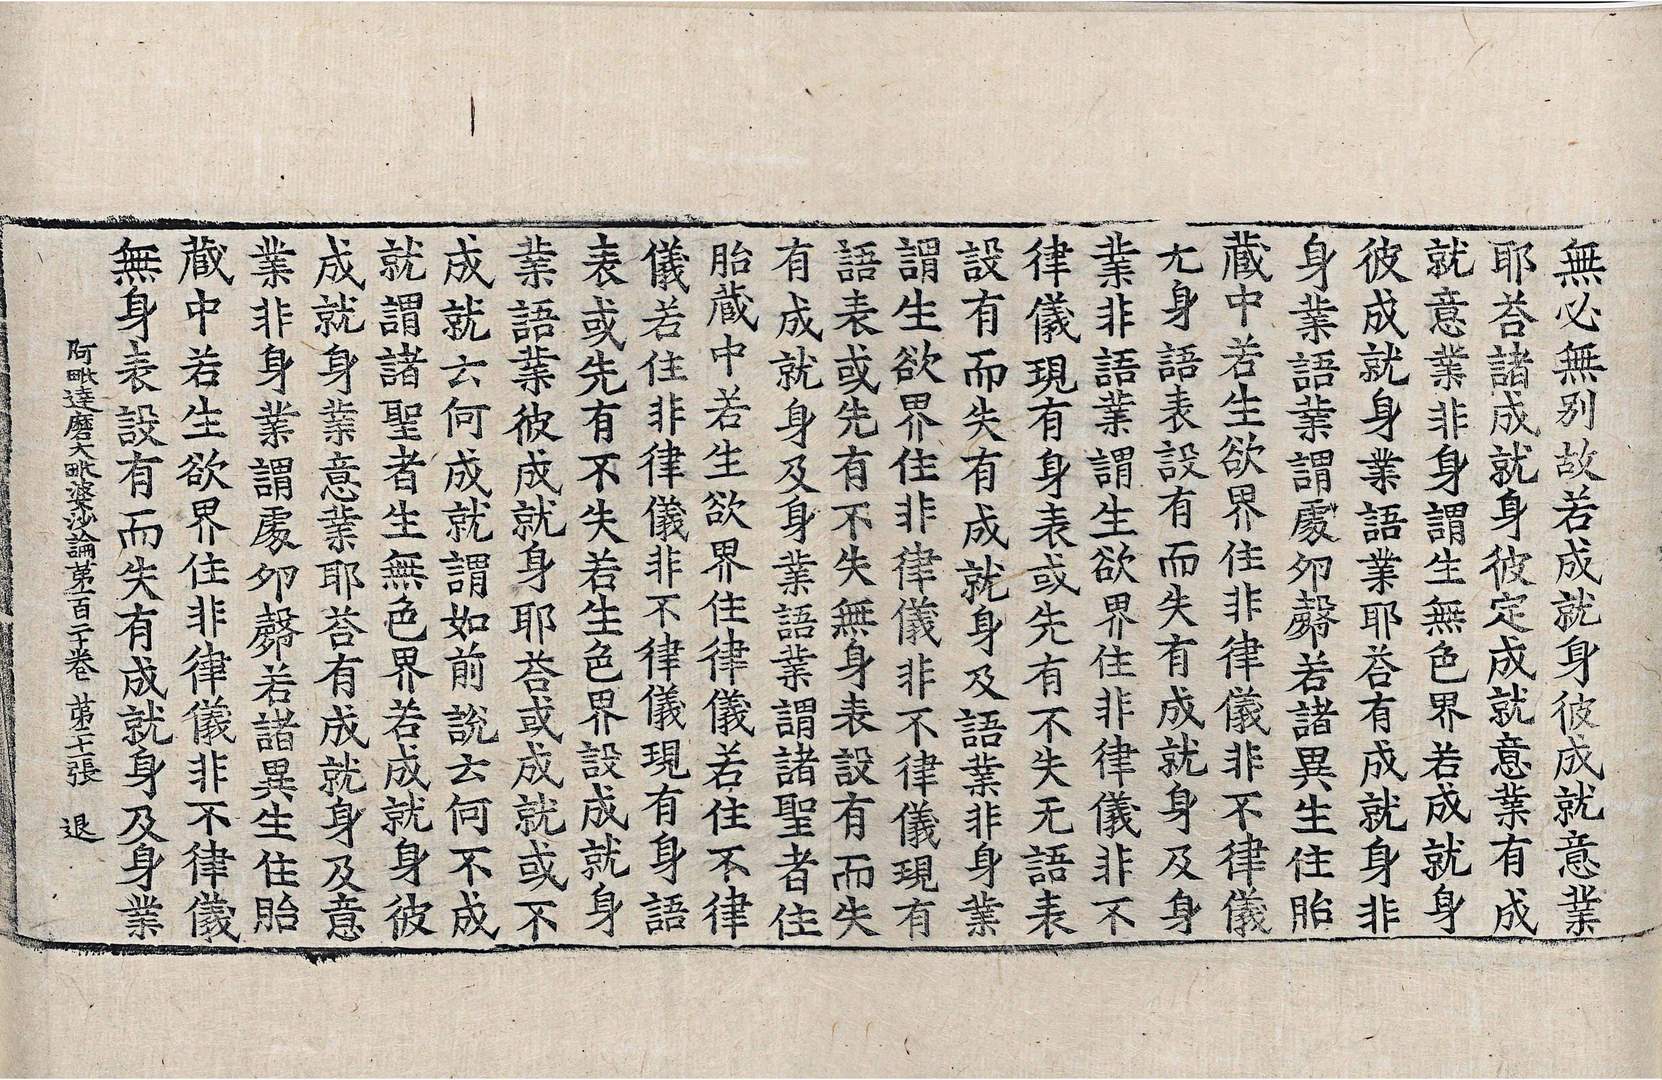 無必無別故若成就身彼成就意業
耶荅諸成就身彼定成就意業有成
就意業非身謂生無色界若成就身
彼成就身業語業耶荅有成就身非
身業語業謂處卵㲉若諸異生住胎
藏中若生欲界住非律儀非不律儀
无身語表設有而失有成就身及身
業非語業謂生欲界住非律儀非不
律儀現有身表或先有不失无語表
設有而失有成就身及語業非身業
謂生欲界住非律儀非不律儀現有
語表或先有不失無身表設有而失
有成就身及身業語業謂諸聖者住
胎藏中若生欲界住律儀若住不律
儀若住非律儀非不律儀現有身語
表或先有不失若生色界設成就身
業語業彼成就身耶荅或成就或不
成就云何成就謂如前說云何不成
就謂諸聖者生無色界若成就身彼
成就身業意業耶荅有成就身及意
業非身業謂處卵㲉若諸異生住胎
藏中若生欲界住非律儀非不律儀
無身表設有而失有成就身及身業
阿毗達磨大毗婆沙論苐一百二十卷 苐二十張 退